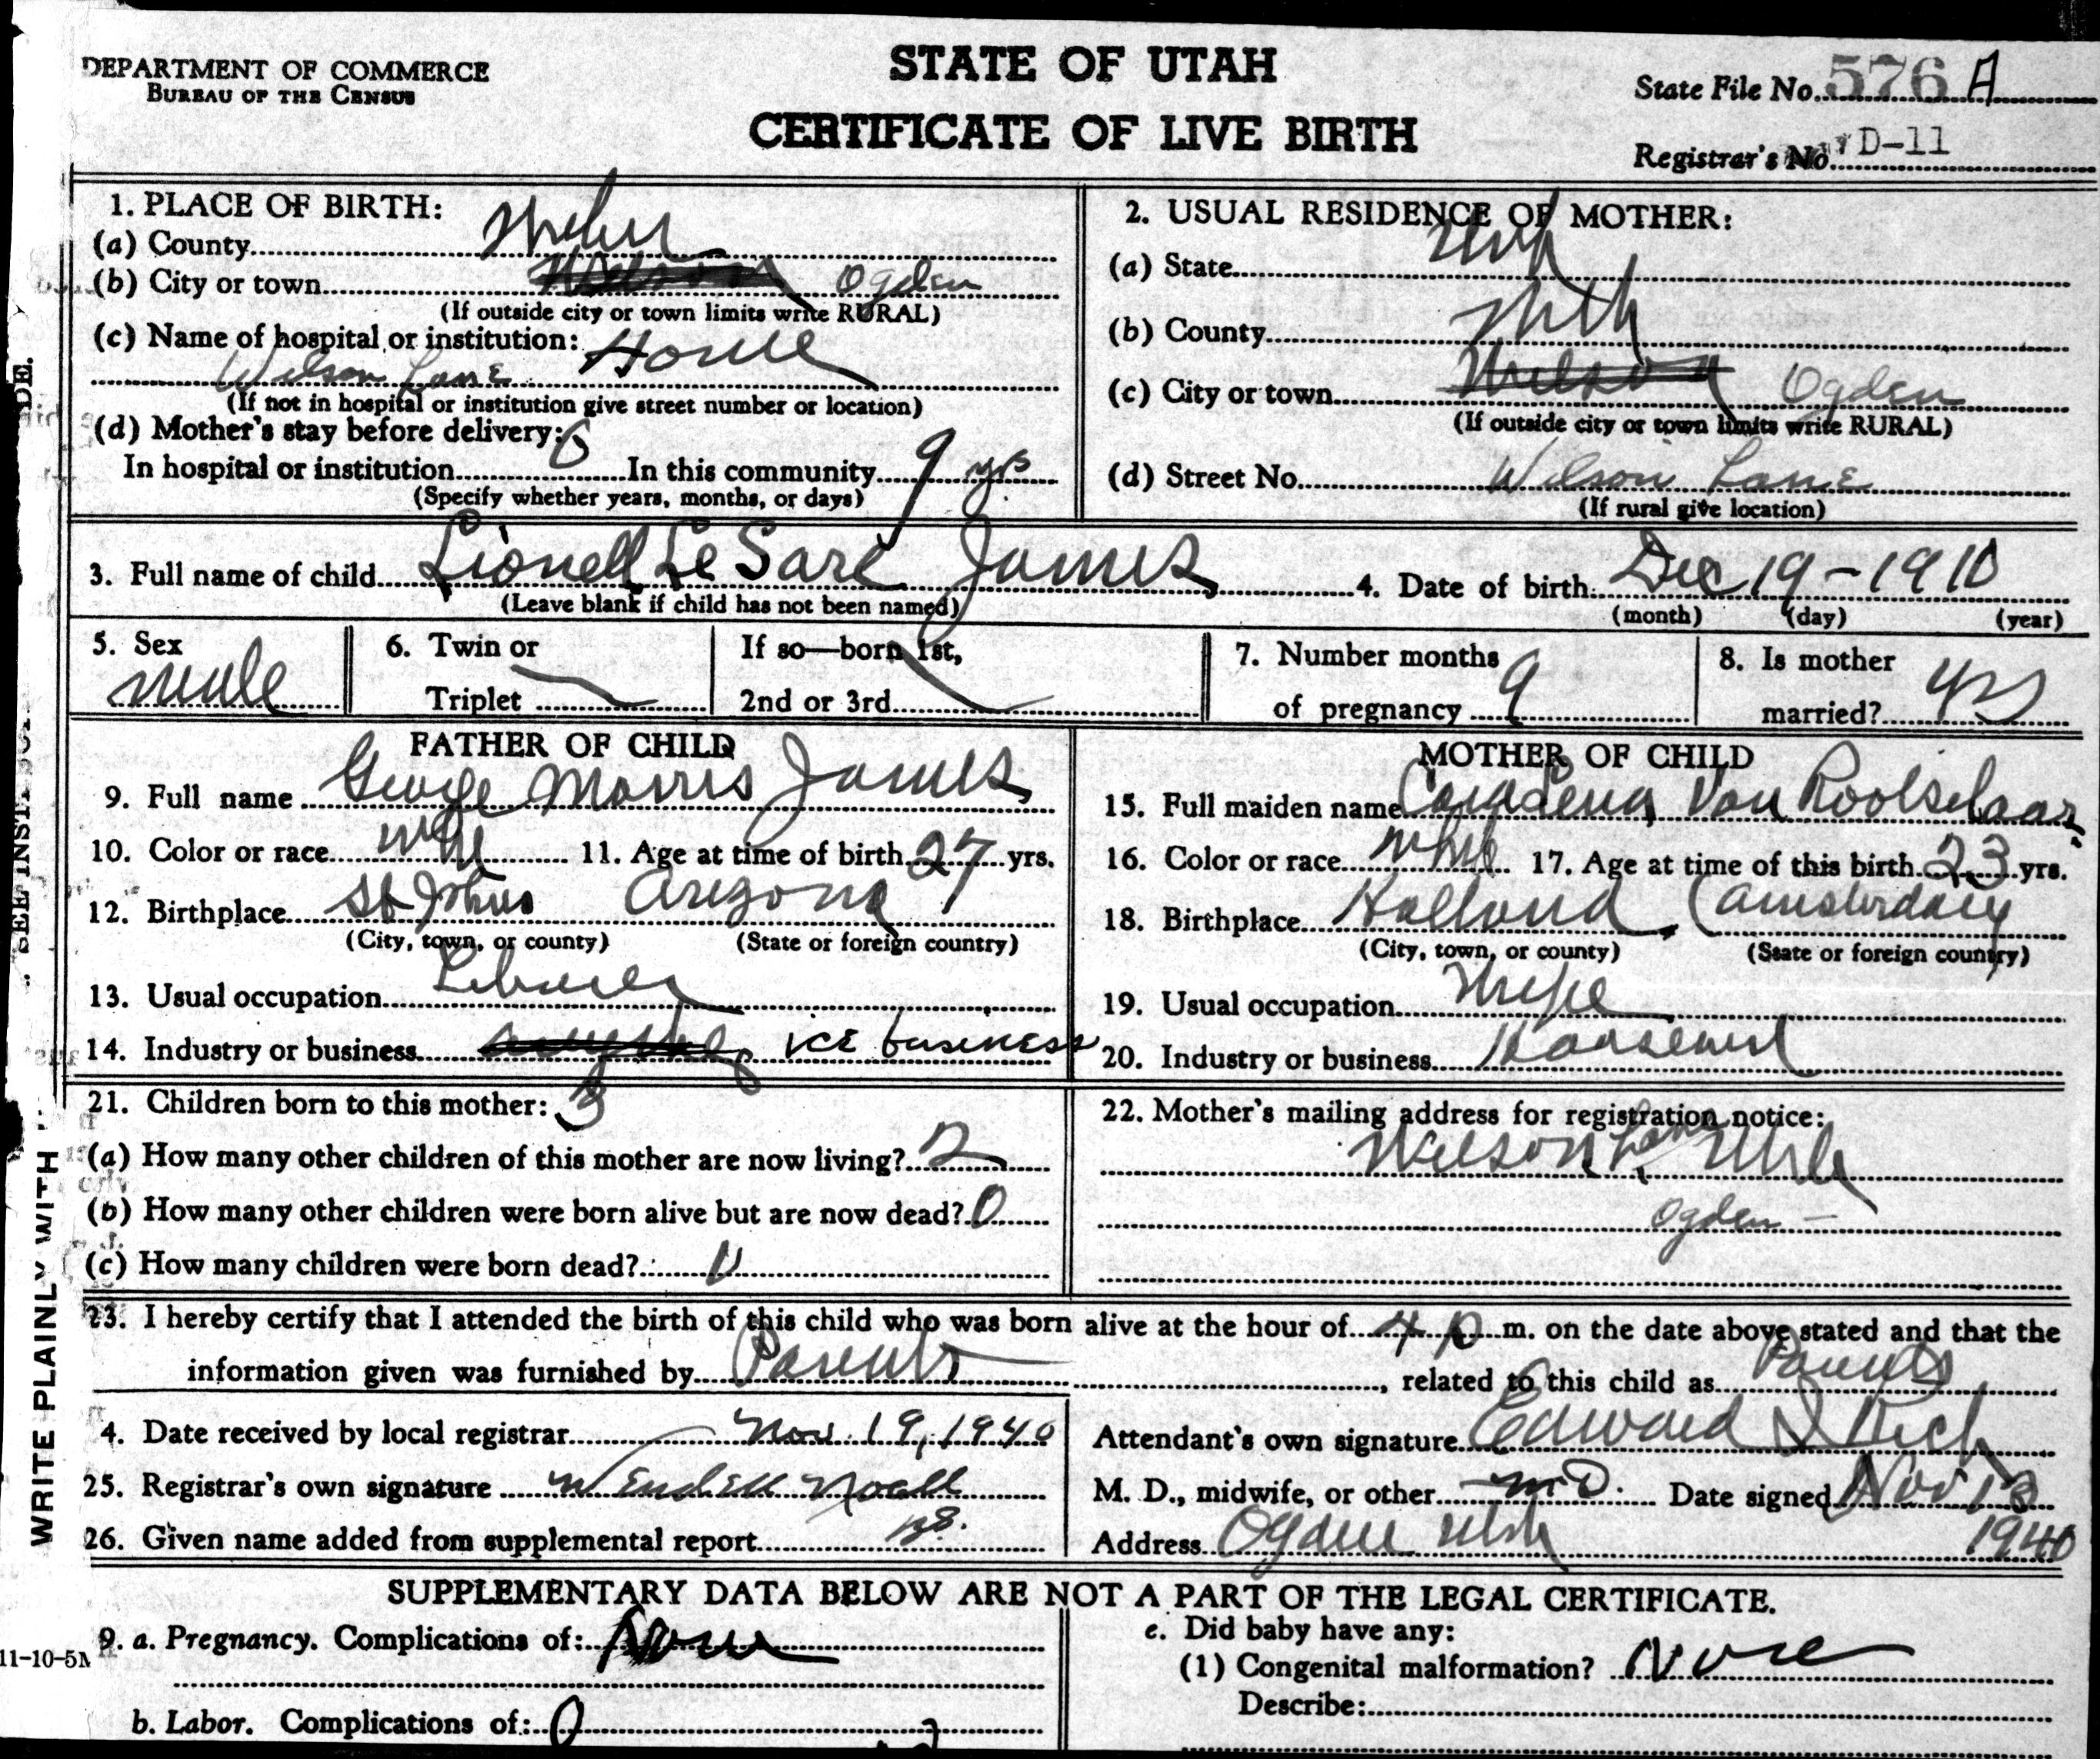 DEPARTMENT OF COMMERCE
BUREAU OF THE CENSUS
STATE OF UTAH
CERTIFICATE OF LIVE BIRTH
State File No. 576 A
Registrar's No. D-11
1. PLACE OF BIRTH:
(a) County Weber
(b) City or town Wilson Ogden
(If outside city or town limits write RURAL)
(c) Name of hospital or institution: Home
Wilson Lane
(If not in hospital or institution give street number or location)
(d) Mother's stay before delivery:
In hospital or institution In this community 9 yrs
(Specify whether years, months, or days)
2. USUAL RESIDENCE OF MOTHER:
(a) State Utah
(b) County
(c) City or town Wilson Ogden
(If outside city or town limits write RURAL)
(d) Street No. Wilson Lane
(If rural give location)
3. Full name of child Lionell Le Sare James 4. Date of birth Dec 19-1910
(Leave blank if child has not been named) (month) (day) (year)
5. Sex male
6. Twin or
Triplet
If so—born 1st,
2nd or 3rd
7. Number months
of pregnancy 9
8. Is mother
married? yes
FATHER OF CHILD
9. Full name George Morris James
10. Color or race white 11. Age at time of birth 27 yrs.
12. Birthplace St Johns Arizona
(City, town, or county) (State or foreign country)
13. Usual occupation
14. Industry or business ice business
MOTHER OF CHILD
15. Full maiden name Van Rootselaar
16. Color or race white 17. Age at time of this birth 23 yrs.
18. Birthplace Holland (Amsterdam
(City, town, or county) (Ssate or foreign country)
19. Usual occupation Wife
20. Industry or business Housewife
21. Children born to this mother: 3
(a) How many other children of this mother are now living? 2
(b) How many other children were born alive but are now dead? 0
(c) How many children were born dead? 0
22. Mother's mailing address for registration notice:
Wilson Lane, Utah
Ogden —
23. I hereby certify that I attended the birth of this child who was born alive at the hour of 4 p m. on the date above stated and that the
information given was furnished by Parents, related to this child as Parents
4. Date received by local registrar Nov. 19, 1940
25. Registrar's own signature Wendell Noall
26. Given name added from supplemental report
Attendant's own signature Edward I Rich
M. D., midwife, or other M.D. Date signed Nov 18
Address Ogden Utah 1940
SUPPLEMENTARY DATA BELOW ARE NOT A PART OF THE LEGAL CERTIFICATE.
9. a. Pregnancy. Complications of: None
b. Labor. Complications of: 0
e. Did baby have any:
(1) Congenital malformation? None
Describe:
WRITE PLAINLY WITH
SEE INST
DE.
11-10-5M